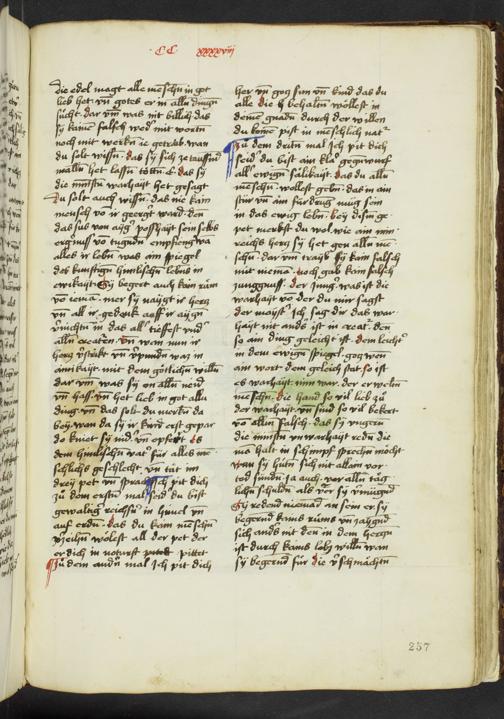 CC xxxxvij
die edel magt alle menschen in got
lieb het vn gotes er in alln dingen
sucht dar vm was nit billich das
sy kainen falsch wed mit wortn
noch mit werkn ie getrib wan
du solt wissn das sy sich ze tausent
maln het lassn tötten e das sy
die minstn vnwarhayt het gesagt
Du solt auch wissn das nie kain
mensch vo ir geergt ward den
das sus von aygner poshayt sein selbs
alles ir lebn was ain spiegel
des kunftigen himlischn lebns in
ewikayt Sy begert auch kain rům
vo iema mer sy naygt ir herz
vn all ir gedenk auff ir aygen
vnichtn in das all tieffest vnd
alln creaturen vn wan nun ir
ainikayt mit dem götlichn willn
dar vm was sy on alln neid
vn hass vn het lieb in got allu
ding vn das solt du merkn da
bey wan da sy ir kind erst gepar
do kniet sy nid vn opfert es
dem himlischn vat für alles me
schlichs geschlecht vn tät im
drey pet vn sprach ich pit dich
zů dem erstn mal seid du bist
gewaltig reichsn in himel vn
auf erdn das du kain menschn
verzeihn wölest all der pet der
er dich in noturft pittet
Zů dem andn mal ich pit dich
her vn got sun vn kind das du
alle die behaltn wöllest in
deinen gnadn durch der willen
du komen pist in menschlich nat
Zů dem dritn mal ich pit dich
seid du hast ain kla gegenwurf
all ewign sälikayt das du alln
menschn wöllest gebn das in ain
in das ewig lebn bey disen ge
pet merkst du wol wie ain min
reichs herz sy het gen alln me
schn dar vm traib sy kain falsch
mit niema noch gab kain falsch
zunggnuss der jung was ist die
warhayt vo der du mir sagst
der mayst Ich sag dir das war
hayt nit ands ist in creat den
so ain ding geleicht ist dem leicht
in dem ewign spiegel gog wen
ain wort dem geleich stat so ist
es warhayt inn war der erweltn
menschn die hand so vil lieb zů
der warhayt vn sind so vil bekert
vo allem falsch das sy vngern
die minstn vnwarhayt redn die
ma halt in schimpf sprechn möcht
wan sy hütn sich nit allain vor
tod sündn ja auch vor alln täg
lichn schuldn als ver sy vermügend
Sy redend niemand an sein er sy
begerend kains růms vn zaygend
sich ands nit den in dem herzn
ist durch kains lobs willn wan
sy begerend für die verschmächten
257